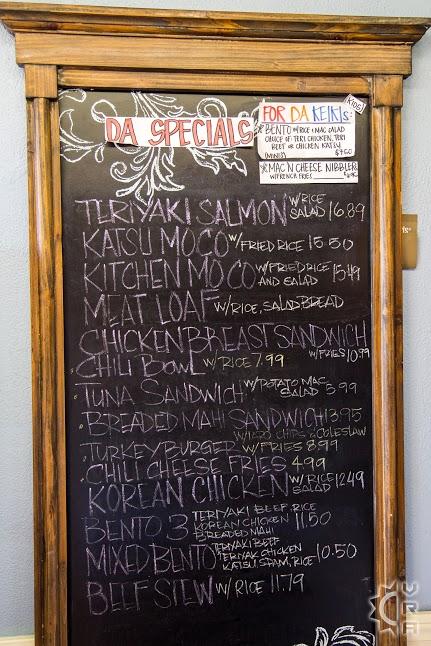 DA SPECIALS
FOR DA KEIKIS:
KIDS
BENTO W/RICE & MAC SALAD
CHOICE OF TERI CHICKEN, TERI
BEEF OR CHICKEN KATSU
(MINIS)
MAC N CHEESE NIBBLER
W/FRENCH FRIES
TERIYAKI SALMON W/RICE SALAD 16.89
KATSU MOCO W/FRIED RICE 15.50
KITCHEN MOCO W/FRIED RICE AND SALAD 15.49
MEAT LOAF W/RICE, SALAD, BREAD
CHICKEN BREAST SANDWICH
W/FRIES 10.99
CHILI BOWL W/RICE 7.99
TUNA SANDWICH W/POTATO MAC SALAD 5.99
BREADED MAHI SANDWICH 13.95
W/TARO CHIPS & COLESLAW
TURKEY BURGER W/FRIES 8.99
CHILI CHEESE FRIES 4.99
KOREAN CHICKEN W/RICE SALAD 12.49
BENTO 3 TERIYAKI BEEF, RICE
KOREAN CHICKEN 11.50
BREADED MAHI
MIXED BENTO TERIYAKI BEEF
TERIYAK CHICKEN
KATSU, SPAM, RICE 10.50
BEEF STEW W/RICE 11.79